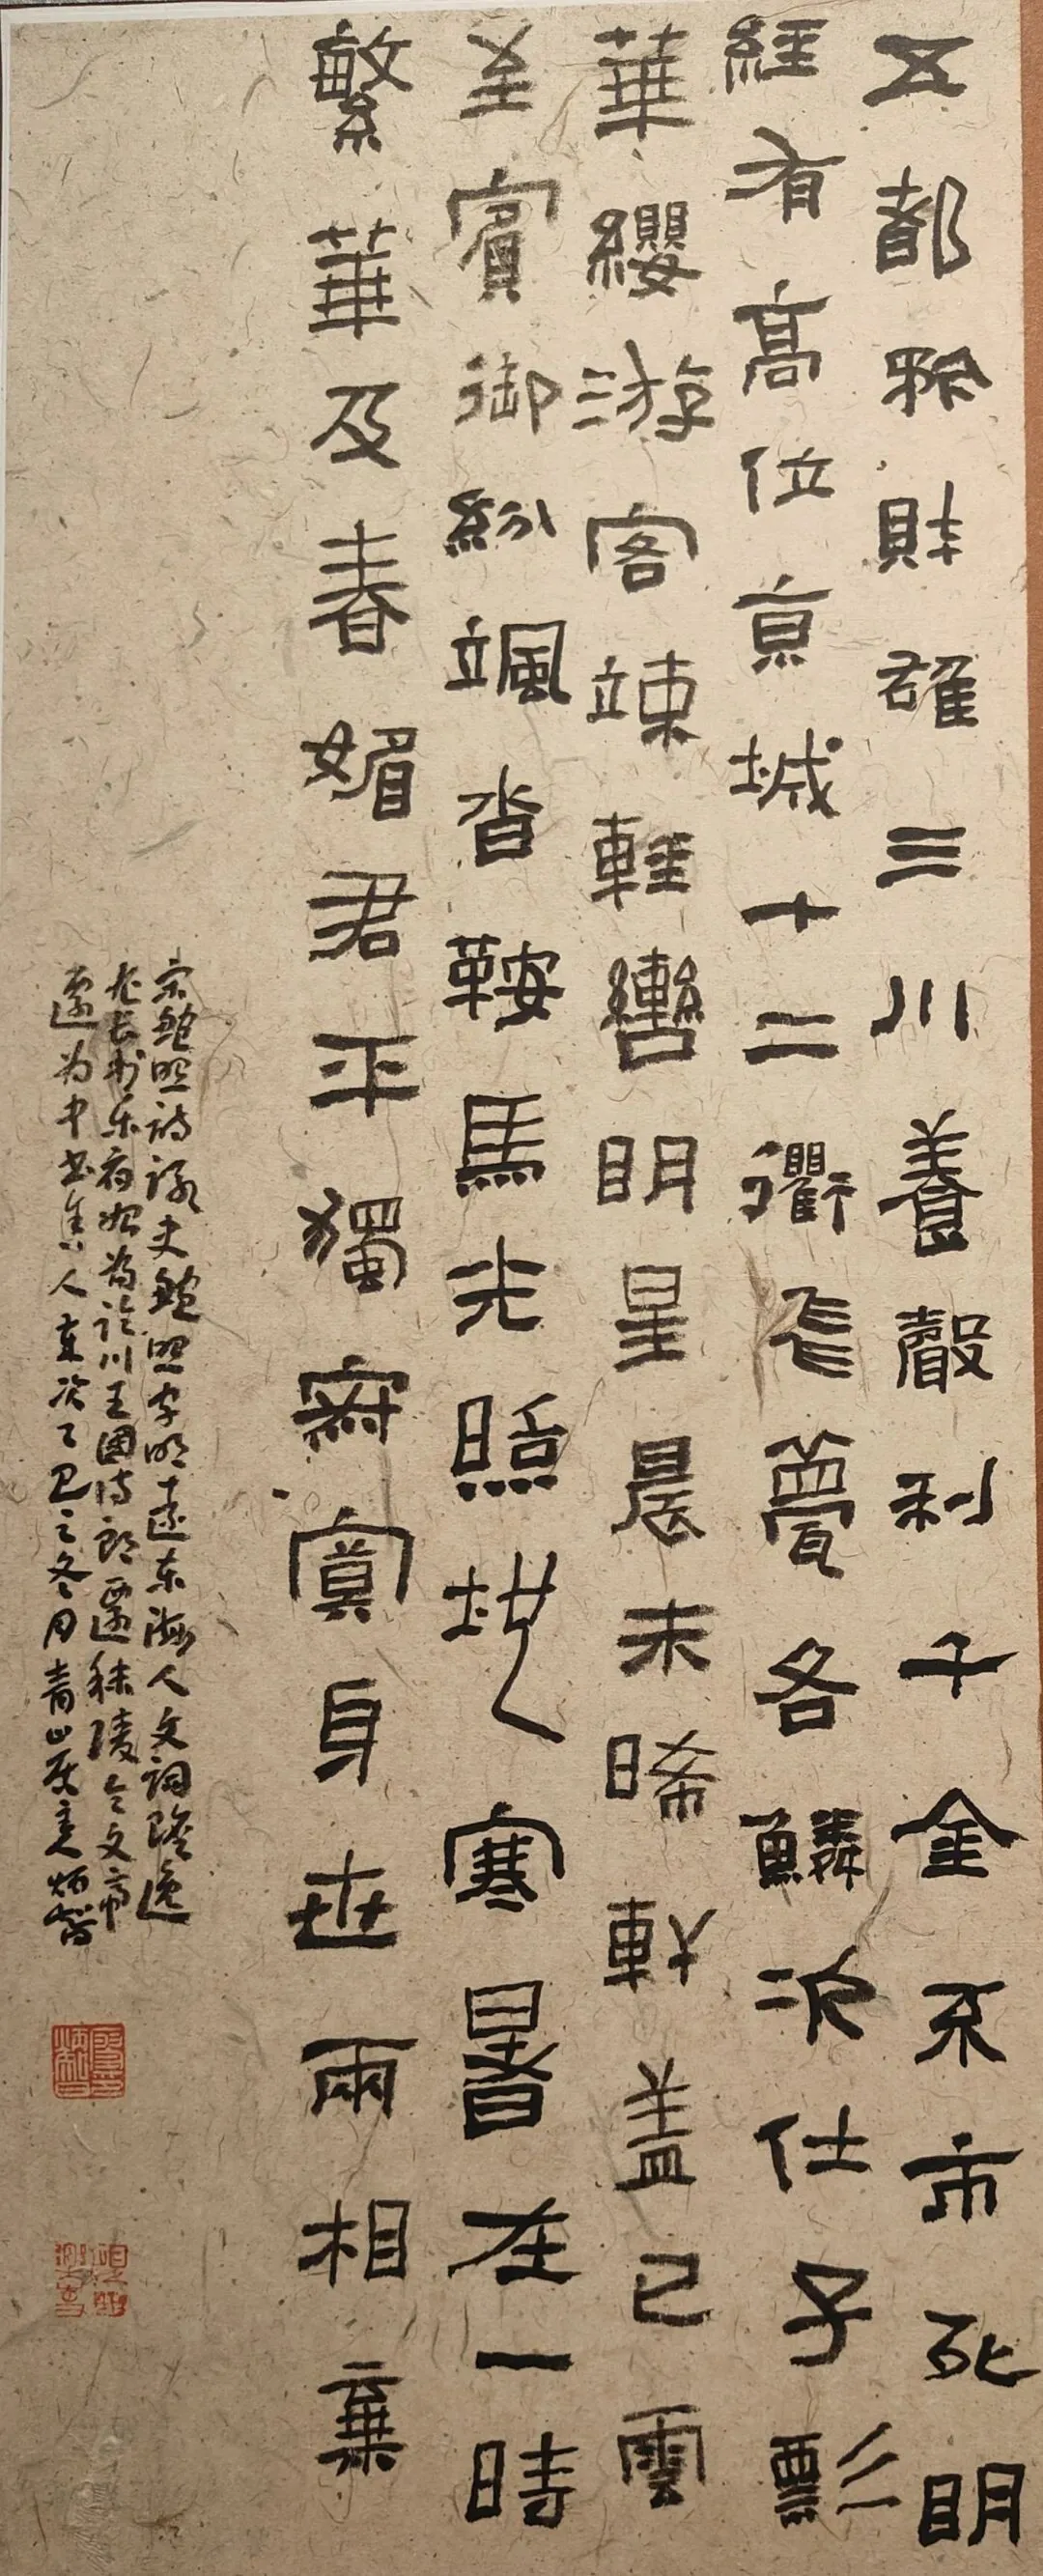 五都矜財雄三川養聲利千金不市死明
經有高位京城十二衢飛甍各鱗次仕子彯
華纓游客竦輕轡明星晨未晞軒蓋已雲
至賓御紛颯沓鞍馬光照地寒暑在一時
繁華及春媚君平獨寂寞身世兩相棄
宋鲍照诗詠史鲍照字明远东海人文词赡逸
尤长於乐府始为临川王国侍郎迁秣陵令文帝
迁为中书舍人 次乙巳之冬月青山